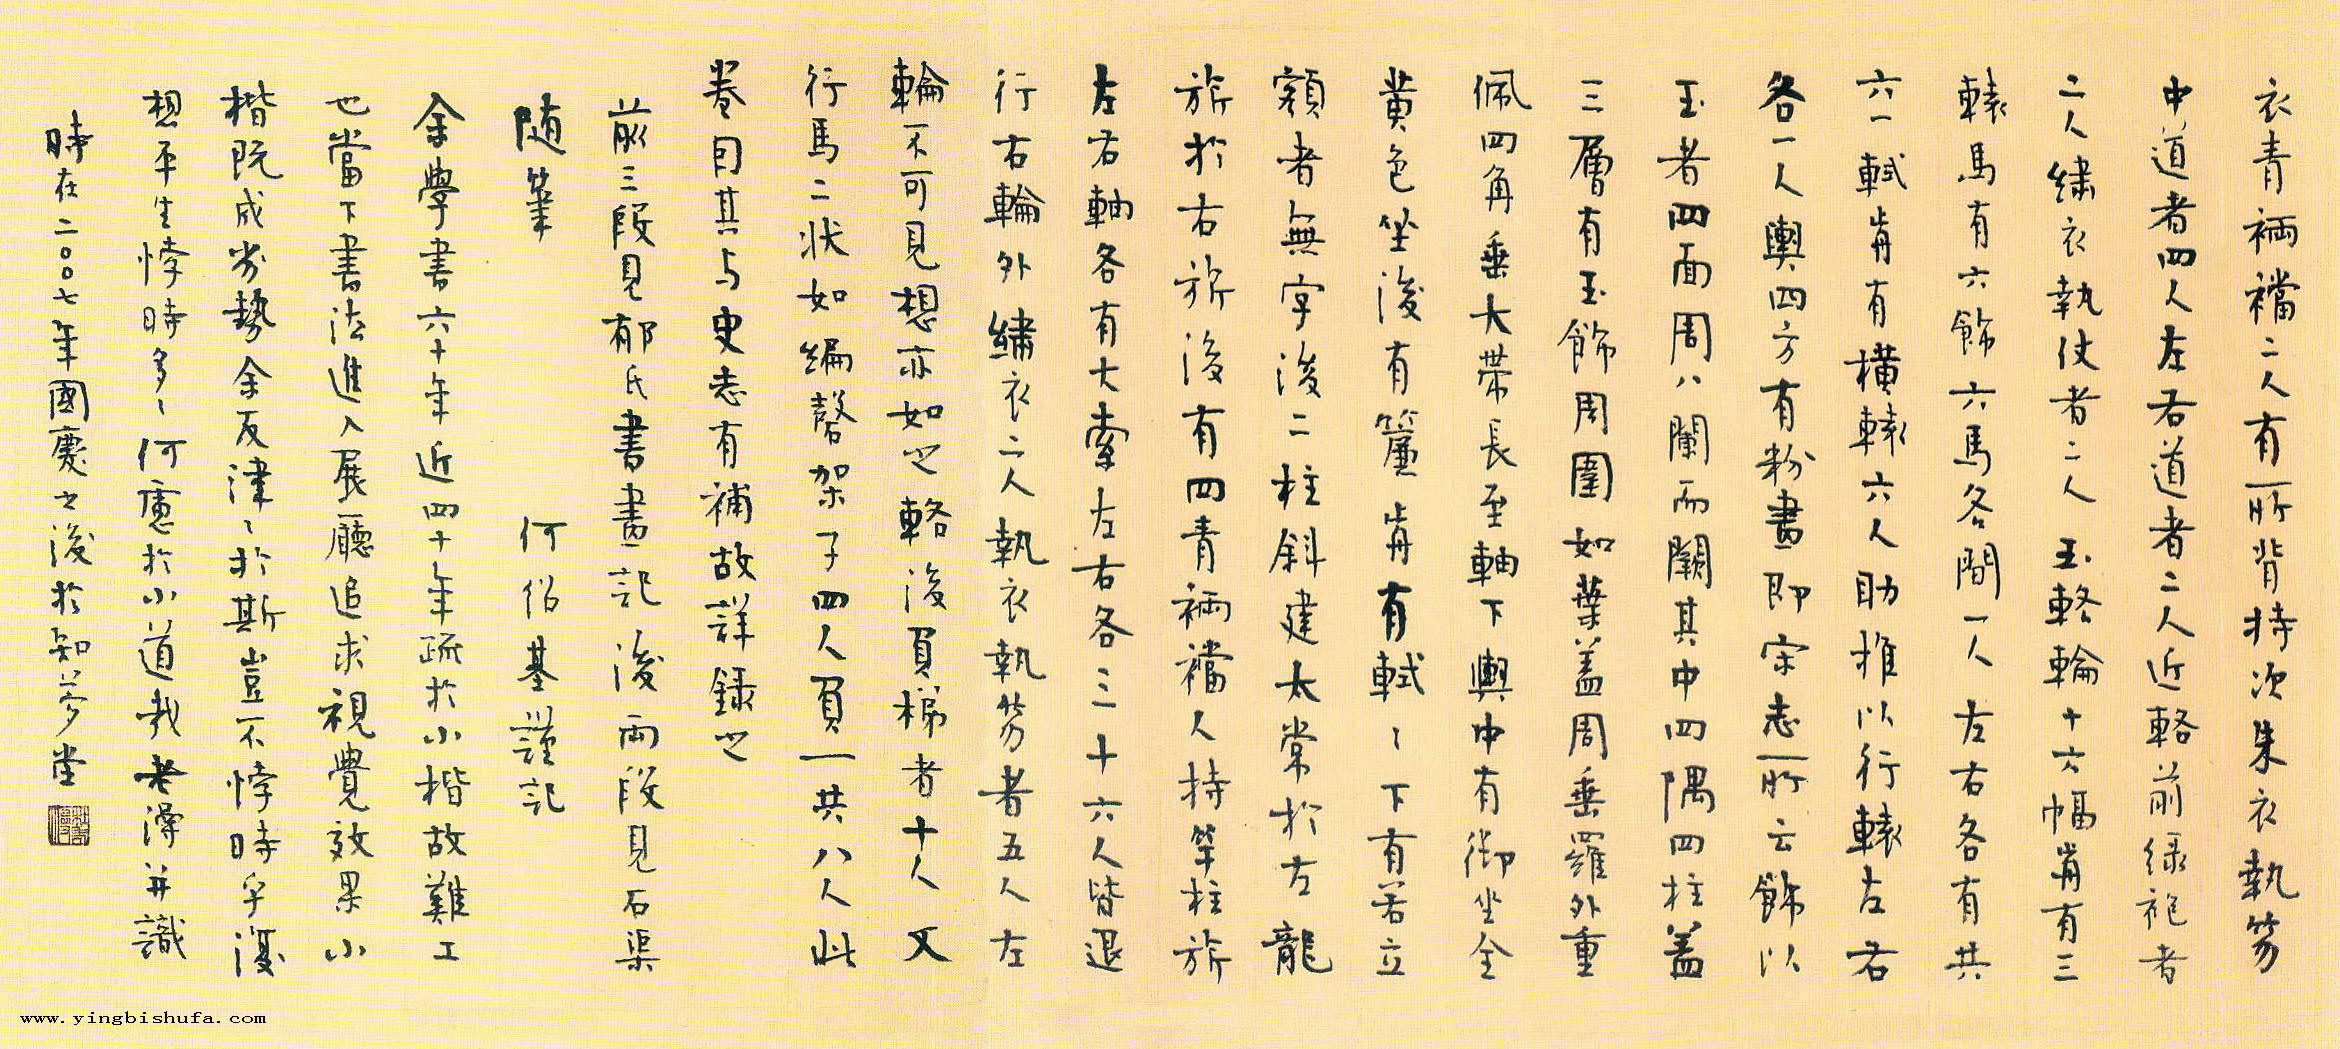 衣青裲襠二人有所背持次朱衣執笏
中道者四人左右道者二人近輅前绿袍者
二人繡衣執仗者二人玉輅輪十六幅前有三
轅馬有六飾六馬各間一人左右各有共
六一軾前有橫轅六人助推以行轅左右
各一人輿四方有粉畫即宋志所云飾以
玉者四面周八闌而闕其中四隅四柱盖
三層有玉飾周圍如葉盖周垂羅外重
佩四角垂大帶長至軸下輿中有御坐全
黄色坐後有簾前有軾〻下有若立
額者無字後二柱斜建太常於左龍
旂於右旂後有四青裲襠人持竿柱旂
左右軸各有大索左右各三十六人皆退
行右輪外繡衣二人執衣執笏者五人左
輪不可見想亦如之輅後負梯者十人又
行馬二狀如編磬架子四人負一共八人此
卷因其与史志有補故詳錄之
前三段見郁氏書畫記後兩段見石渠
随筆 何紹基謹記
余學書六十年近四十年疏於小楷故難工
也當下書法進入展廳追求視覺效果小
楷既成劣勢余反津〻於斯豈不悖時乎復
想平生悖時多〻何慮於小道哉老澤并識
時在二〇〇七年國慶之後於知夢堂
www.yingbishufa.com